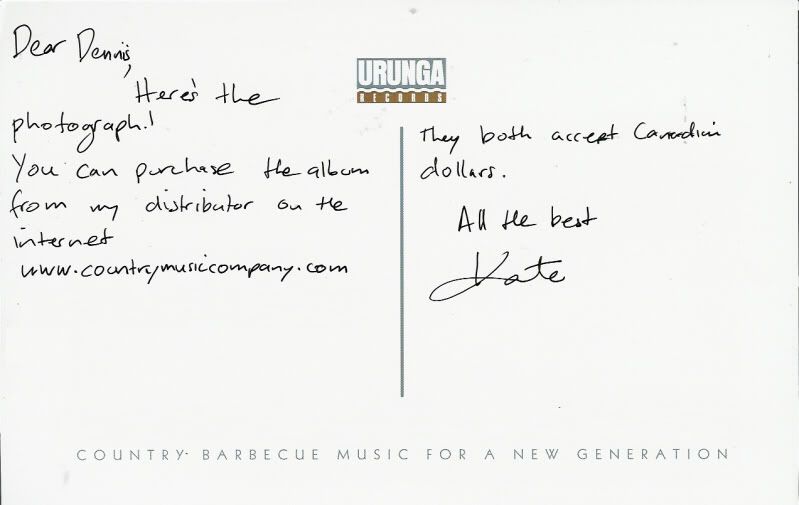 Dear Dennis,
Here's the
photograph!
You can purchase the album
from my distributor on the
internet
www.countrymusiccompany.com
URUNGA
RECORDS
They both accept Canadian
dollars.
All the best
Kate
COUNTRY· BARBECUE MUSIC FOR A NEW GENERATION